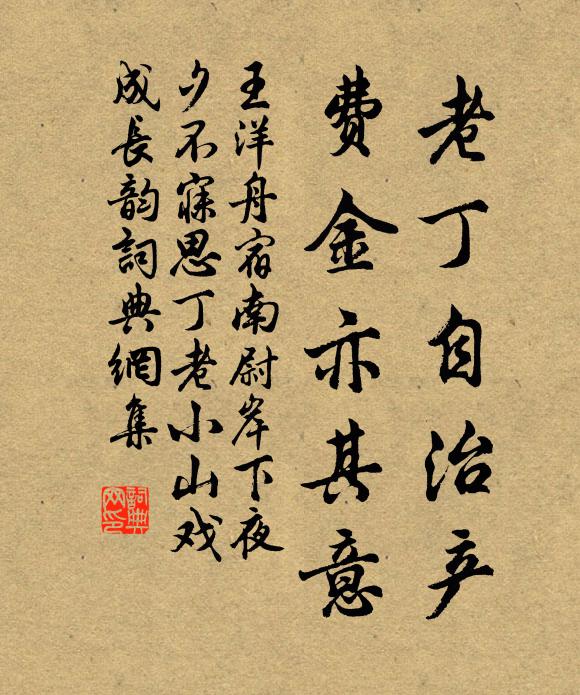 老丁自治产
费金亦其意
王洋舟宿南尉岸下夜
夕不寐思丁老小山戏
成長韵詞典網集
詞典
网印